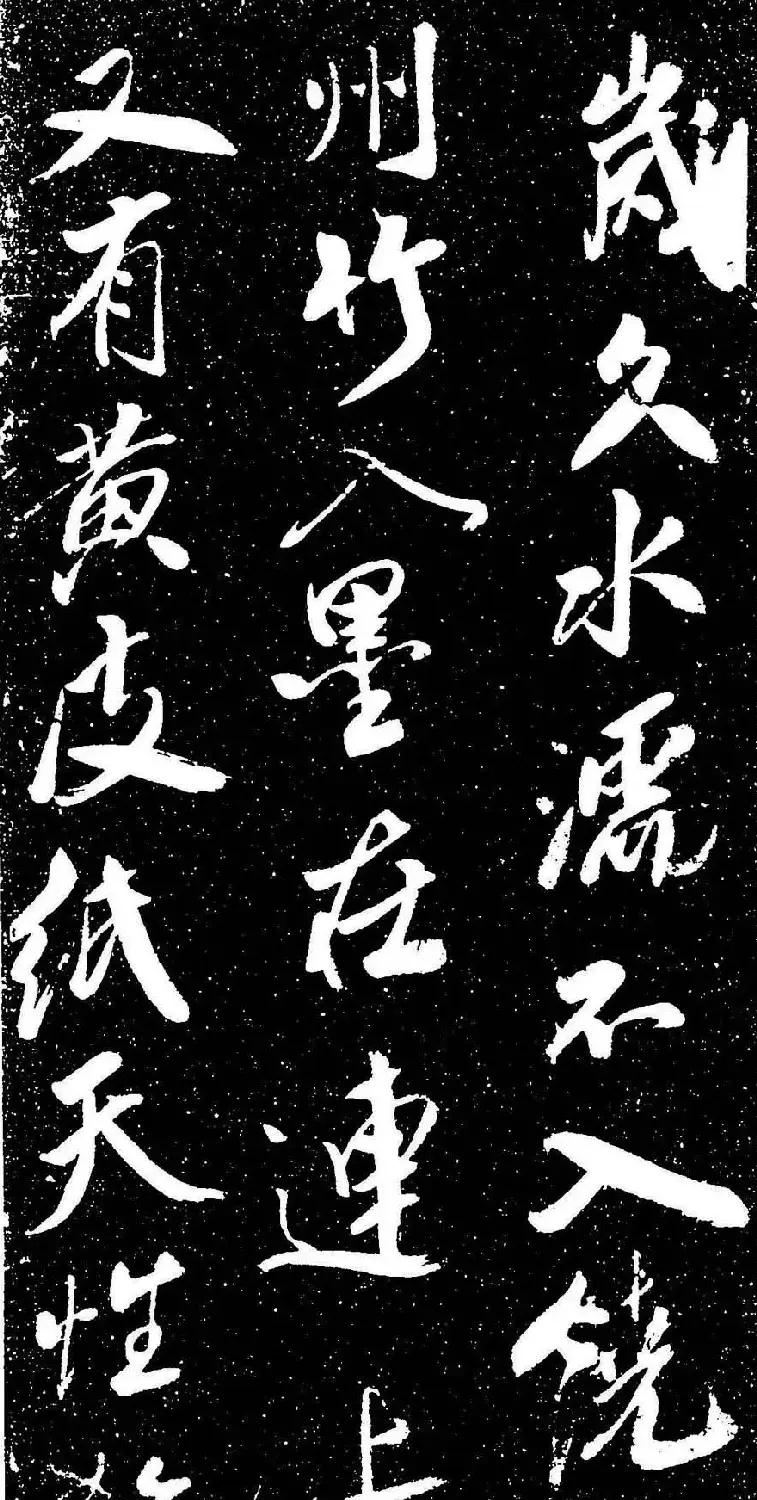 歲久水濡不入饒
州竹入墨在連上
又有黄皮纸天性